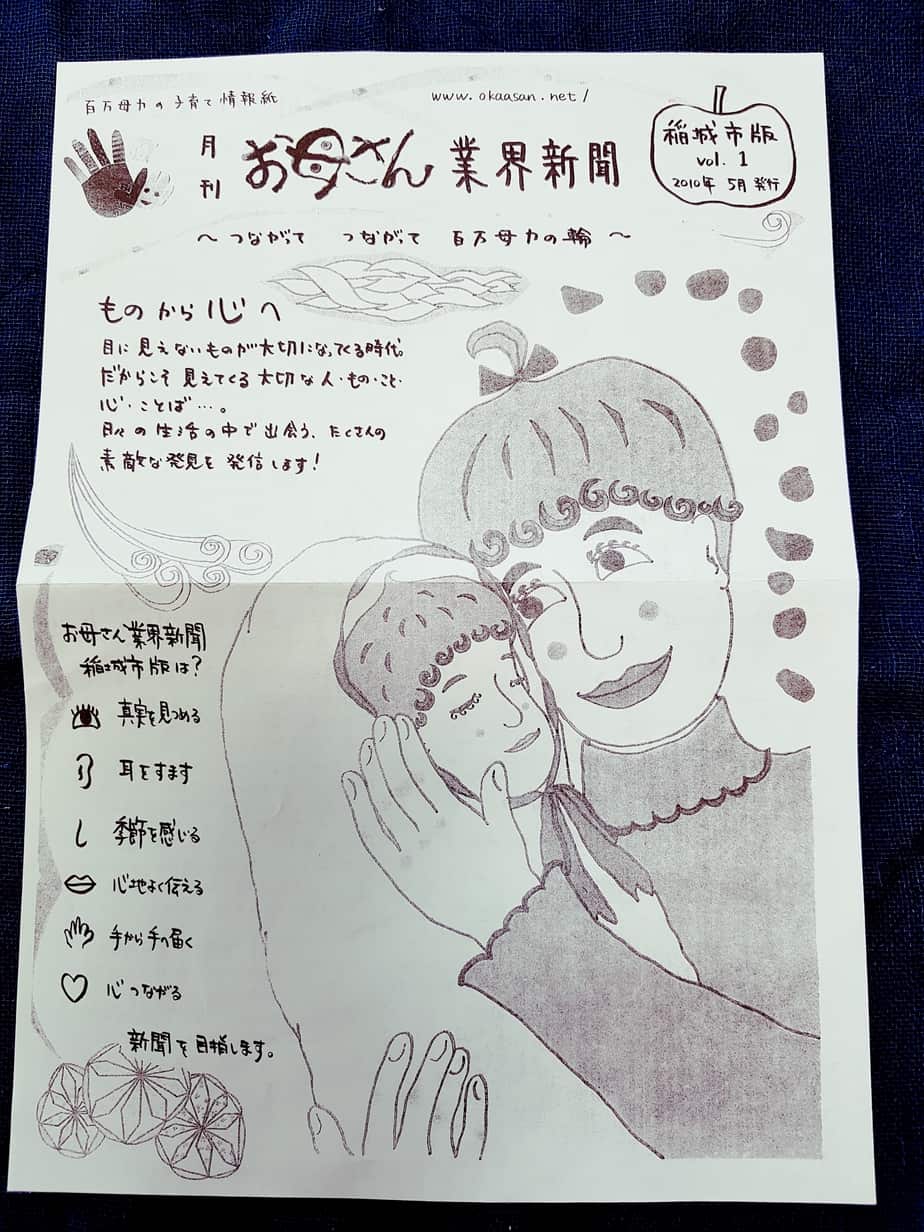 百万母力の子育て情報紙
www.okaasan.net/
月刊 お母さん業界新聞
稲城市版
vol. 1
2010年 5月 発行
～つながって つながって 百万母力の輪～
ものから心へ
目に見えないものが大切になってくる時代。
だからこそ見えてくる大切な人・もの・こと・
心・ことば…。
日々の生活の中で出会う、たくさんの
素敵な発見を発信します!
お母さん業界新聞
稲城市版は?
真実を見つめる
耳をすます
季節を感じる
心地よく伝える
手から手へ届く
心つながる
新聞を目指します。